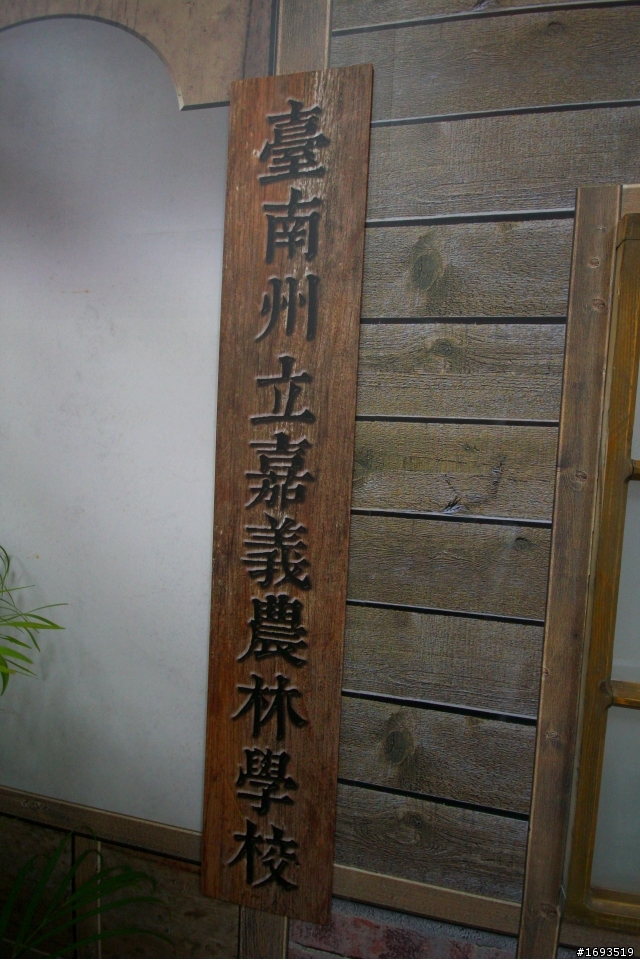 臺南州立嘉義農林學校
#1693519